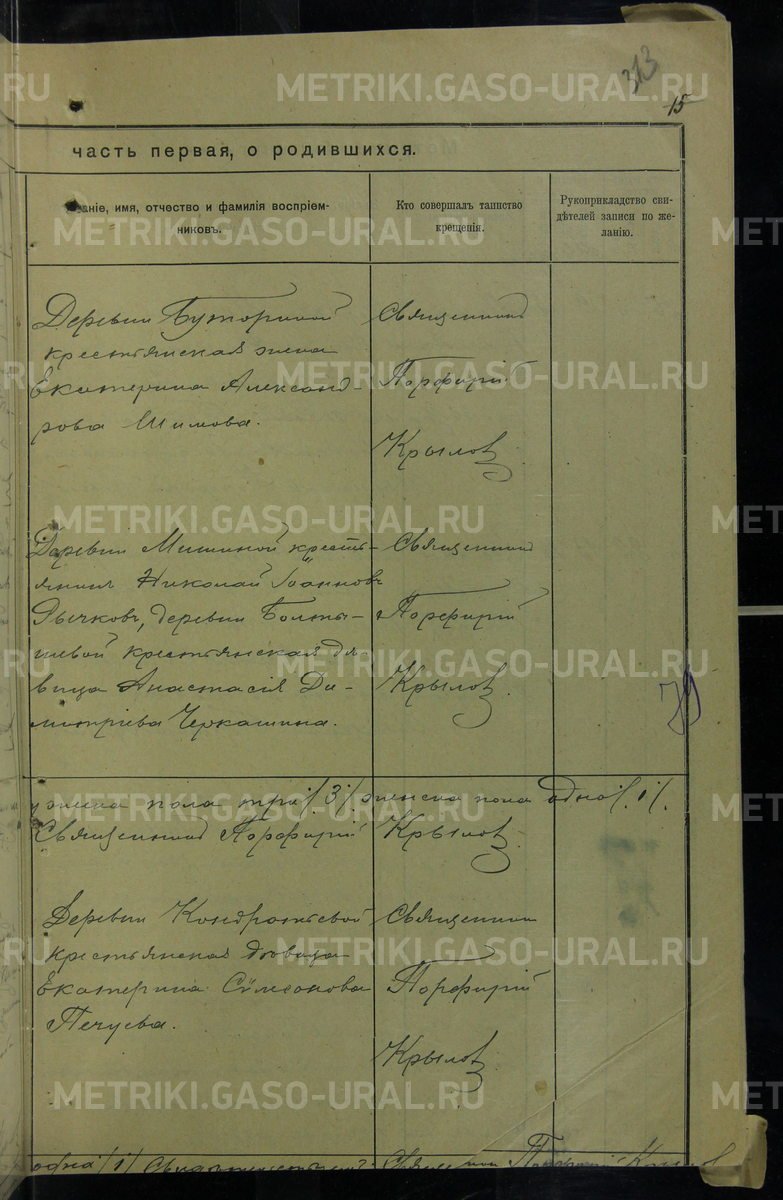 313
15
часть первая, о родившихся.
Званіе, имя, отчество и фамилія воспріем-
никовъ.
Кто совершалъ таинство
крещенія.
Рукоприкладство сви-
дѣтелей записи по же-
ланію.
Деревни Буториной
крестьянская жена
Екатерина Александ-
рова Шимова.
Священникъ
Порфирій
Крыловъ
Деревни Мишиной кресть-
янинъ Николай Іоанновъ
Рычковъ, деревни Болты-
шевой крестьянская дѣ-
вица Анастасія Ди-
митріева Черкашина.
Священникъ
Порфирій
Крыловъ.
мужска пола три /3/ женска пола одно /1/.
Священникъ Порфирій Крыловъ
Деревни Кондратьевой
крестьянская дѣвица
Екатерина Сѵмеонова
Печуева.
Священникъ
Порфирій
Крыловъ
одна /1/
METRIKI.GASO-URAL.RU